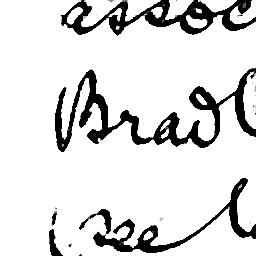 assoc
Bradl
(see l